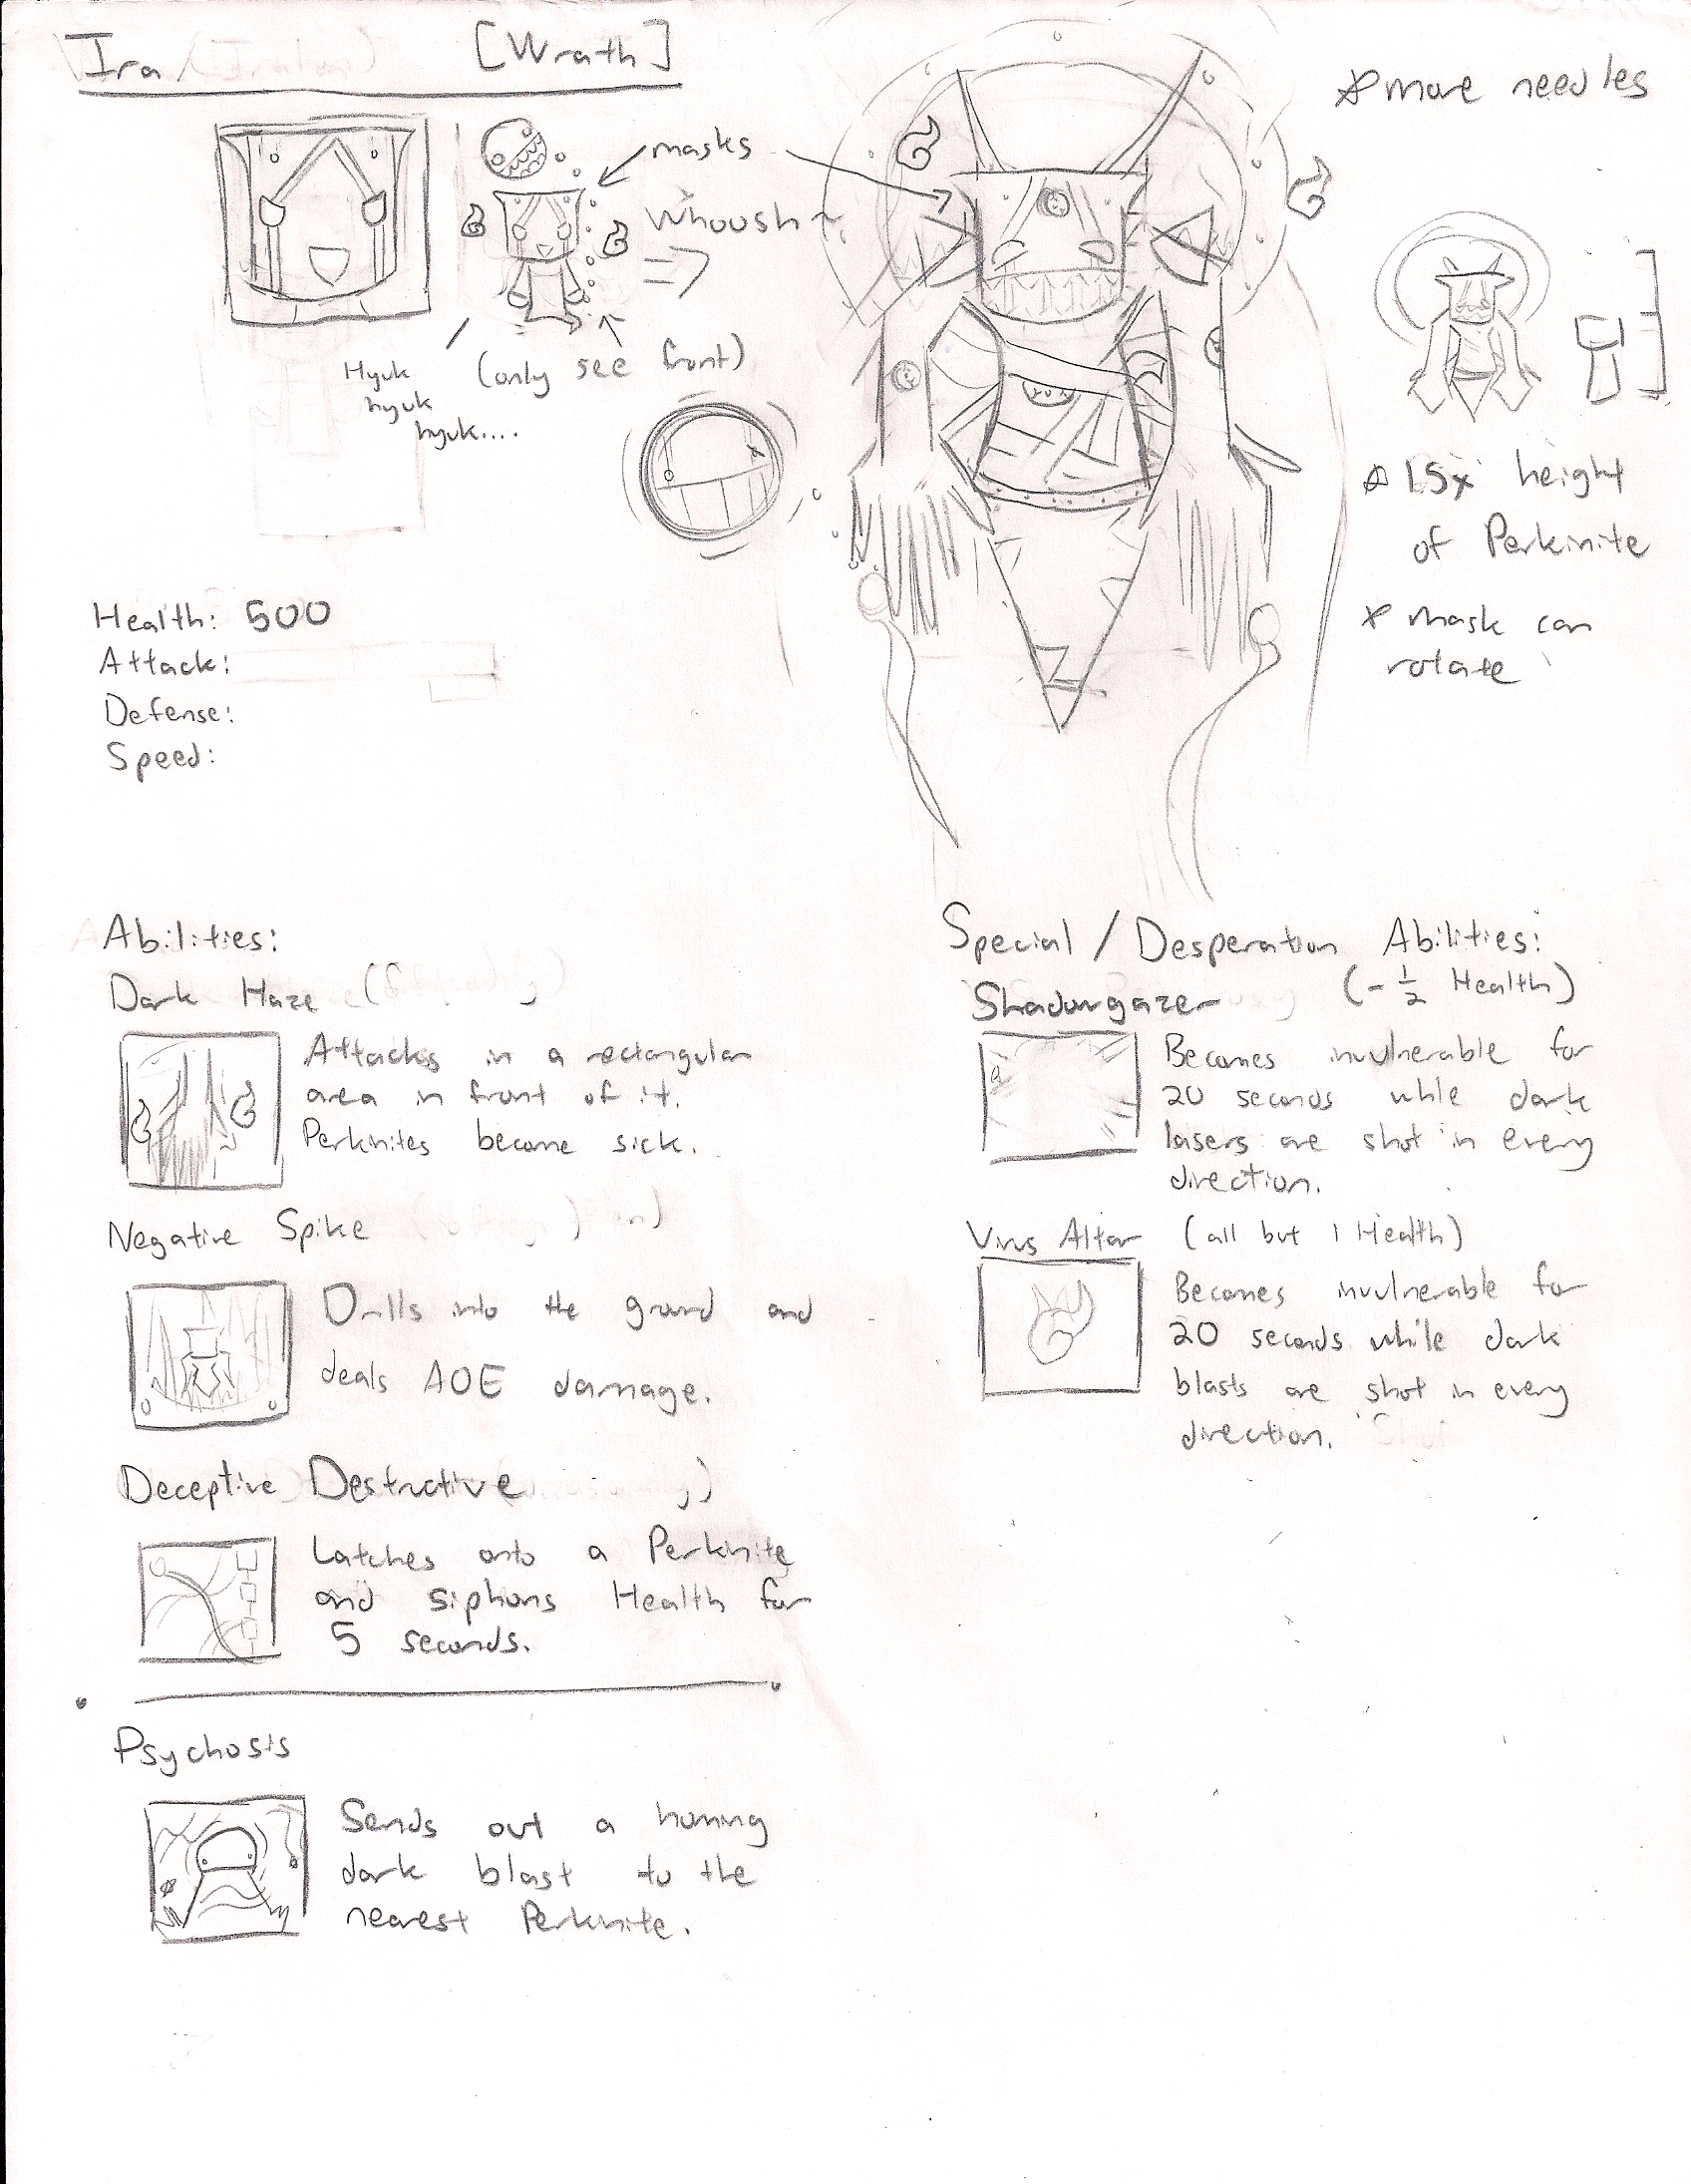 Ira [Wrath]
* more needles
masks
Whoosh~
(only see front)
Hyuk
hyuk
hyuk....
* 1.5x height
of Perkinite
* mask can
rotate
Health: 500
Attack:
Defense:
Speed:
Abilities:
Dark Haze
Attacks in a rectangular
area in front of it.
Perkinites become sick.
Negative Spike
Drills into the ground and
deals AOE damage.
Deceptive Destructive
Latches onto a Perkinite
and siphons Health for
5 seconds.
Psychosis
Sends out a homing
dark blast to the
nearest Perkinite.
Special / Desperation Abilities:
Shadowgazer (-1/2 Health)
Becomes invulnerable for
20 seconds while dark
lasers are shot in every
direction.
Virus Altar (all but 1 Health)
Becomes invulnerable for
20 seconds while dark
blasts are shot in every
direction.